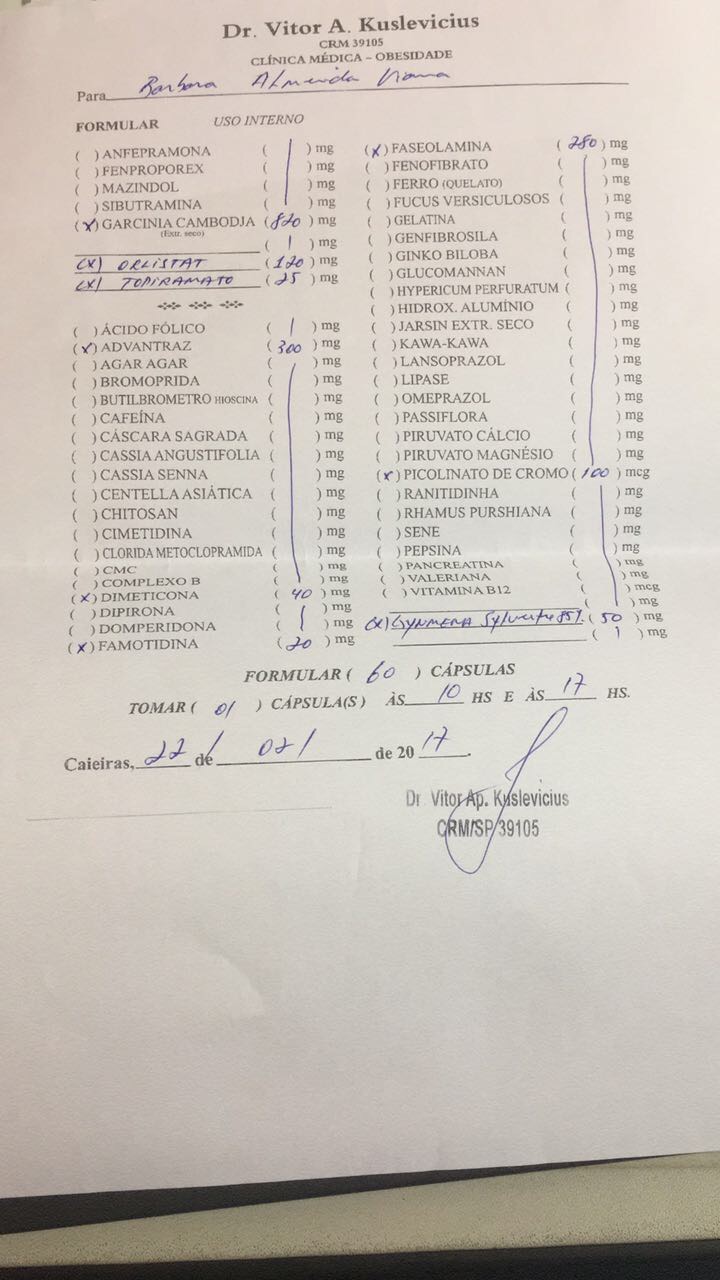 Dr. Vitor A. Kuslevicius
CRM 39105
CLÍNICA MÉDICA – OBESIDADE
Para Barbara Almeida Viana
FORMULAR USO INTERNO
( ) ANFEPRAMONA ( ) mg
( ) FENPROPOREX ( ) mg
( ) MAZINDOL ( ) mg
( ) SIBUTRAMINA ( ) mg
(x) GARCINIA CAMBODJA (820) mg
(Extr. seco)
( ) mg
(x) ORLISTAT (120) mg
(x) TOPIRAMATO (25) mg
( ) ÁCIDO FÓLICO ( ) mg
(x) ADVANTRAZ (300) mg
( ) AGAR AGAR ( ) mg
( ) BROMOPRIDA ( ) mg
( ) BUTILBROMETRO HIOSCINA ( ) mg
( ) CAFEÍNA ( ) mg
( ) CÁSCARA SAGRADA ( ) mg
( ) CASSIA ANGUSTIFOLIA ( ) mg
( ) CASSIA SENNA ( ) mg
( ) CENTELLA ASIÁTICA ( ) mg
( ) CHITOSAN ( ) mg
( ) CIMETIDINA ( ) mg
( ) CLORIDA METOCLOPRAMIDA ( ) mg
( ) CMC ( ) mg
( ) COMPLEXO B ( ) mg
(x) DIMETICONA (40) mg
( ) DIPIRONA ( ) mg
( ) DOMPERIDONA ( ) mg
(x) FAMOTIDINA (20) mg
(x) FASEOLAMINA (280) mg
( ) FENOFIBRATO ( ) mg
( ) FERRO (QUELATO) ( ) mg
( ) FUCUS VERSICULOSOS ( ) mg
( ) GELATINA ( ) mg
( ) GENFIBROSILA ( ) mg
( ) GINKO BILOBA ( ) mg
( ) GLUCOMANNAN ( ) mg
( ) HYPERICUM PERFURATUM ( ) mg
( ) HIDROX. ALUMÍNIO ( ) mg
( ) JARSIN EXTR. SECO ( ) mg
( ) KAWA-KAWA ( ) mg
( ) LANSOPRAZOL ( ) mg
( ) LIPASE ( ) mg
( ) OMEPRAZOL ( ) mg
( ) PASSIFLORA ( ) mg
( ) PIRUVATO CÁLCIO ( ) mg
( ) PIRUVATO MAGNÉSIO ( ) mg
(x) PICOLINATO DE CROMO (100) mcg
( ) RANITIDINHA ( ) mg
( ) RHAMUS PURSHIANA ( ) mg
( ) SENE ( ) mg
( ) PEPSINA ( ) mg
( ) PANCREATINA ( ) mg
( ) VALERIANA ( ) mg
( ) VITAMINA B12 ( ) mcg
( ) mg
(x) Gynmena Sylvestre 85% (50) mg
( ) mg
FORMULAR ( 60 ) CÁPSULAS
TOMAR ( 01 ) CÁPSULA(S) ÀS 10 HS E ÀS 17 HS.
Caieiras, 22 / de 02 / de 20 17.
Dr. Vitor Ap. Kuslevicius
CRM/SP 39105